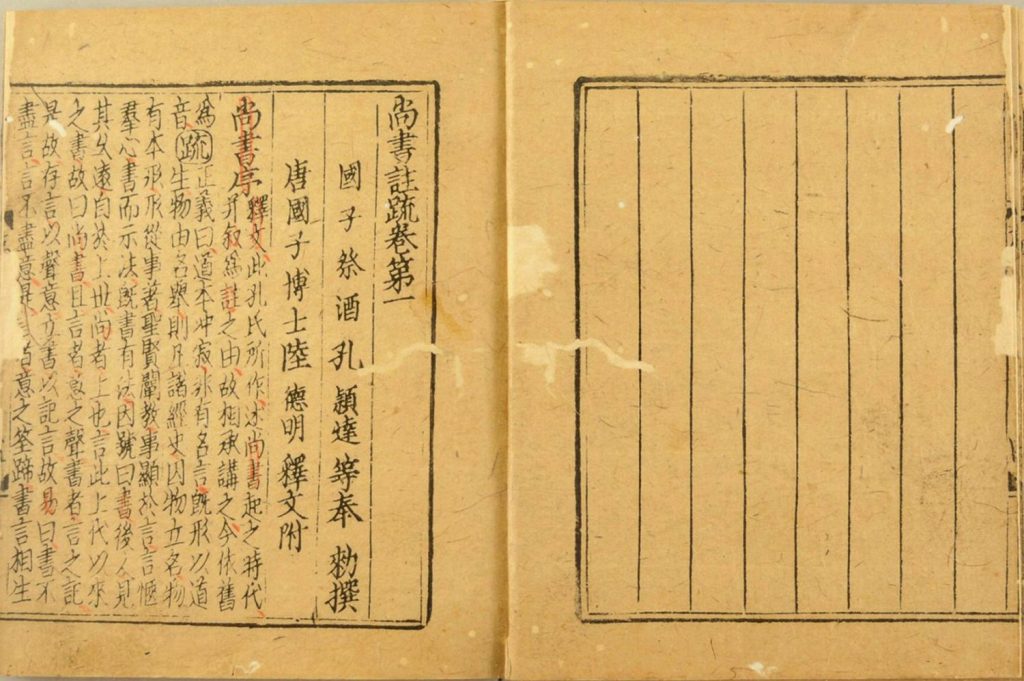 尚書註疏卷第一
國子祭酒孔穎達等奉勑撰
唐國子博士陸德明釋文附
尚書序釋文此孔氏所作述尚書起之時代
并敘爲註之由故相承講之今依舊
爲音疏正義曰道本冲寂非有名言既形以道
生物由名舉則凡諸經史因物立名物
有本形形從事著聖賢闡教事顯於言言愜
羣心書而示法既書有法因號曰書後人見
其久遠自於上世尚者上也言此上代以來
之書故曰尚書且言者意之聲書者言之記
是故存言以聲意立書以記言故易曰書不
盡言言不盡意是言者意之筌蹄書言相生